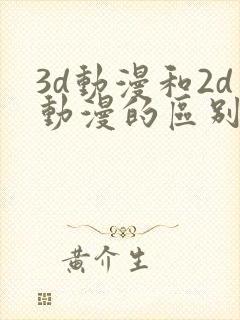 3d動漫和2d
動漫的區別
黃介生